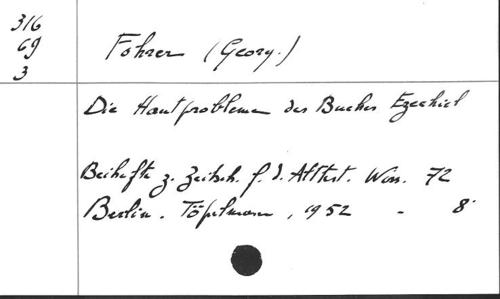 316
69
3
Fohrer (Georg.)
Die Hauptprobleme des Buches Ezechiel
Beihefte z. Zeitsch. f. d. Alttest. Wiss. 72
Berlin. Töpelmann, 1952 - 8°